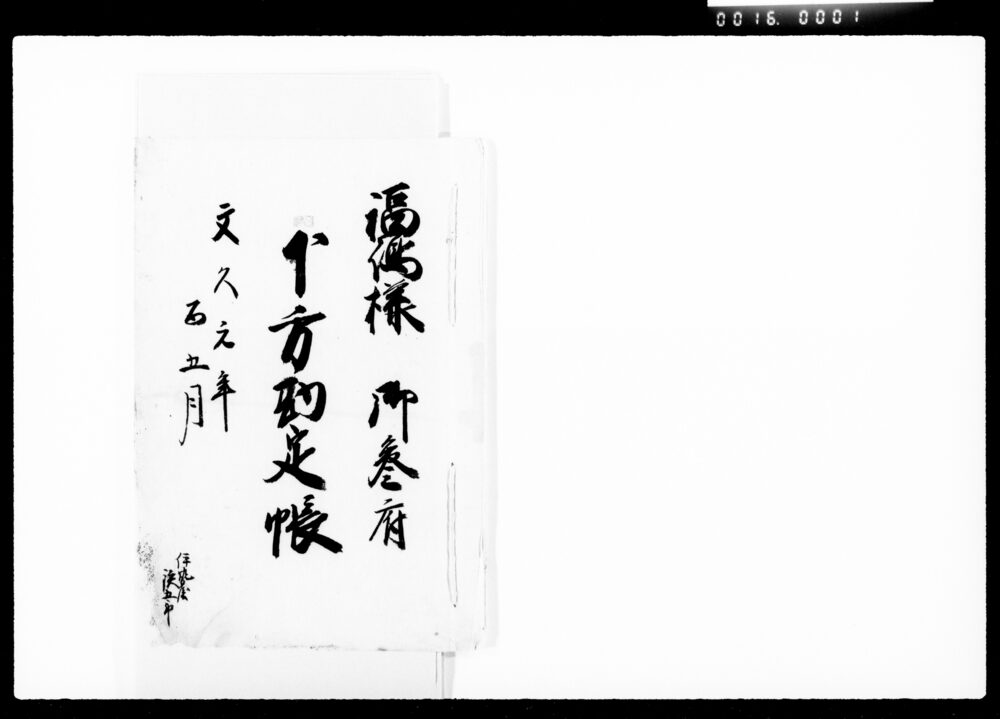 0016.0001
福嶋様　御参府
下方勘定帳
文久元年
酉五月